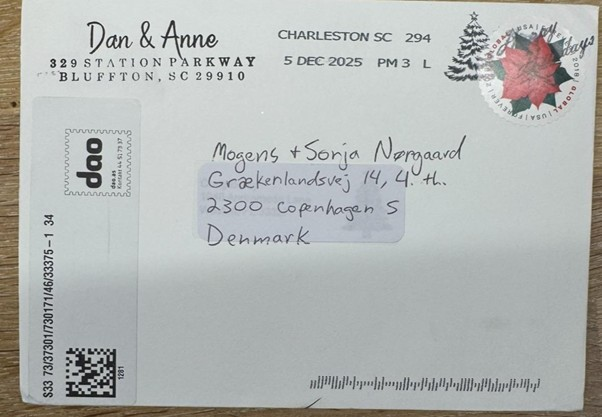 Dan & Anne
329 STATION PARKWAY
BLUFFTON, SC 29910
CHARLESTON SC 294
5 DEC 2025 PM 3 L
GLOBAL USA FOREVER 2018 GLOBAL USA FOREVER
days
Mogens + Sonja Nørgaard
Grækenlandsvej 14, 4. th.
2300 Copenhagen S
Denmark
dao
dao.as
S33 73/37301/730171/46/33375-1 34
1281